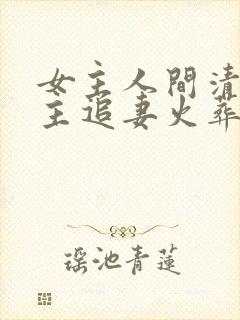 女主人間清
主追妻火葬
瑶池青蓮